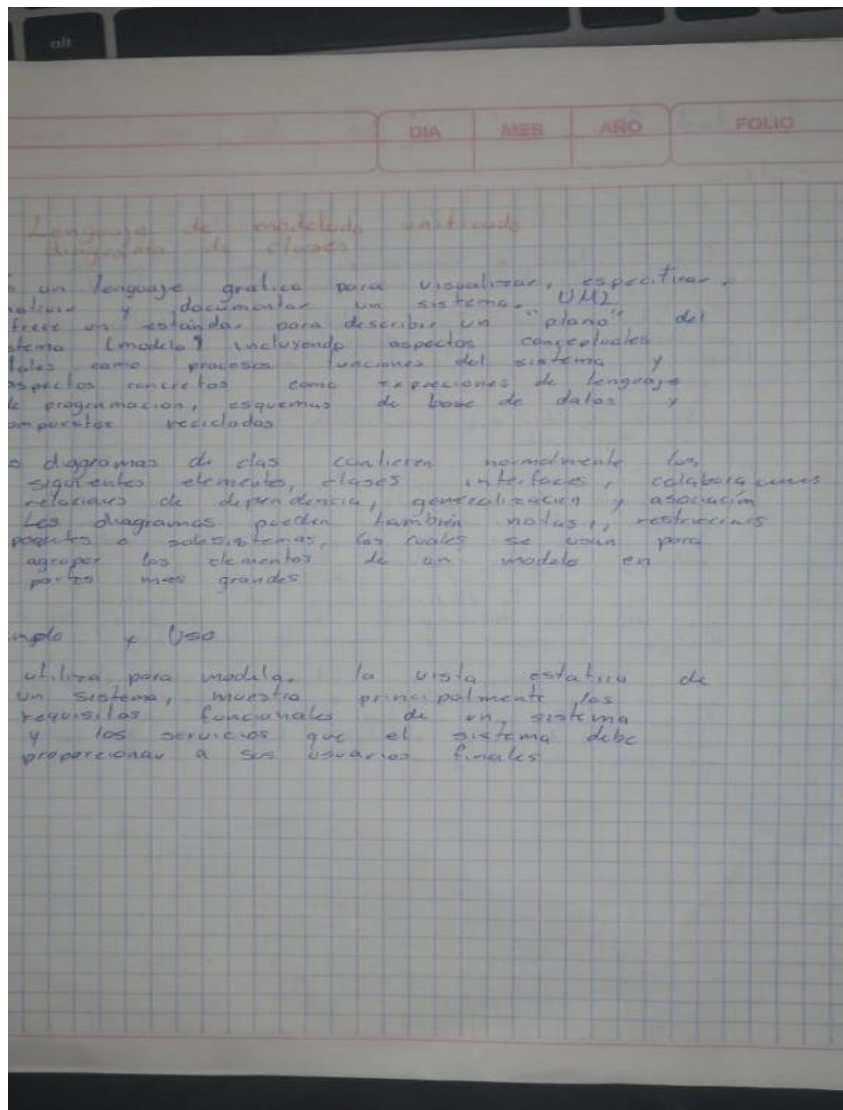 alt
DIA MES AÑO FOLIO
Lenguaje de modelado unificado
diagrama de clases
un lenguaje grafico para visualizar, especificar
y documentar un sistema. UML
un estandar para describir un "plano" del
(modelo) incluyendo aspectos conceptuales
tales como procesos funciones del sistema y
aspectos concretos como expreciones de lenguaje
de programacion, esquemas de base de datos y
compuestos reciclados
diagramas de clas contienen normalmente los
siguientes elemento, clases interfaces, colaboraciones
relaciones de dependencia, generalizacion y asociación
Los diagramas pueden también notas, restriccinis
paquetes o subsistemas, los cuales se usan para
agrupar los elementos de un modelo en
partes mas grandes
mplo y Uso
utiliza para modelar la vista estatica de
un sistema, muestra principalmente los
requisitos funcionales de un sistema
y los servicios que el sistema debe
proporcionar a sus usuarios finales